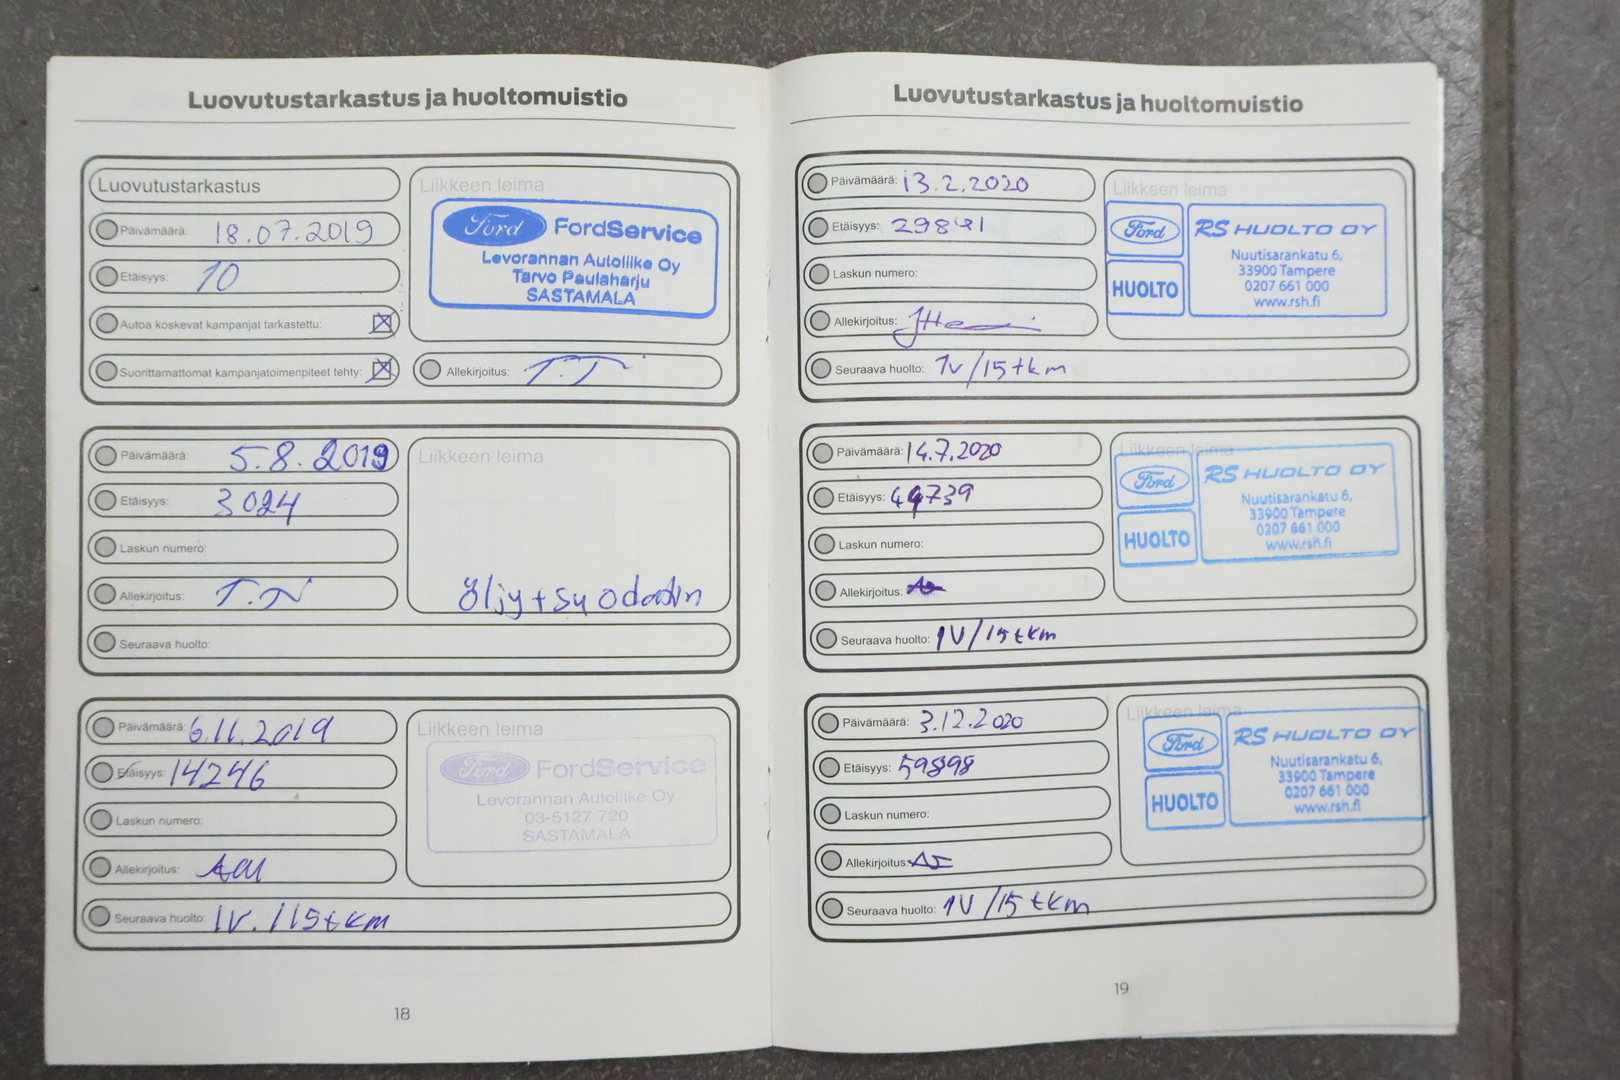 Luovutustarkastus ja huoltomuistio
Luovutustarkastus
Päivämäärä: 18.07.2019
Etäisyys: 10
Autoa koskevat kampanjat tarkastettu:
Suorittamattomat kampanjatoimenpiteet tehty:
Liikkeen leima
Ford FordService
Levorannan Autoliike Oy
Tarvo Paulaharju
SASTAMALA
Allekirjoitus: T.T
Päivämäärä: 5.8.2019
Etäisyys: 3024
Laskun numero:
Allekirjoitus:
Liikkeen leima
öljy+suodatin
Seuraava huolto:
Päivämäärä: 6.11.2019
Etäisyys: 14246
Laskun numero:
Allekirjoitus:
Liikkeen leima
Ford FordService
Levorannan Autoliike Oy
03-5127 720
SASTAMALA
Seuraava huolto: 1V./15tkm
18
Luovutustarkastus ja huoltomuistio
Päivämäärä: 13.2.2020
Etäisyys:
Laskun numero:
Allekirjoitus:
Liikkeen leima
Ford
HUOLTO
RS HUOLTO OY
Nuutisarankatu 6,
33900 Tampere
0207 661 000
www.rsh.fi
Seuraava huolto: 1v/15tkm
Päivämäärä: 14.7.2020
Etäisyys: 44739
Laskun numero:
Allekirjoitus:
Liikkeen leima
Ford
HUOLTO
RS HUOLTO OY
Nuutisarankatu 6,
33900 Tampere
0207 661 000
www.rsh.fi
Seuraava huolto: 1V/15tkm
Päivämäärä: 3.12.2020
Etäisyys: 59898
Laskun numero:
Allekirjoitus:
Liikkeen leima
Ford
HUOLTO
RS HUOLTO OY
Nuutisarankatu 6,
33900 Tampere
0207 661 000
www.rsh.fi
Seuraava huolto: 1V/15tkm
19